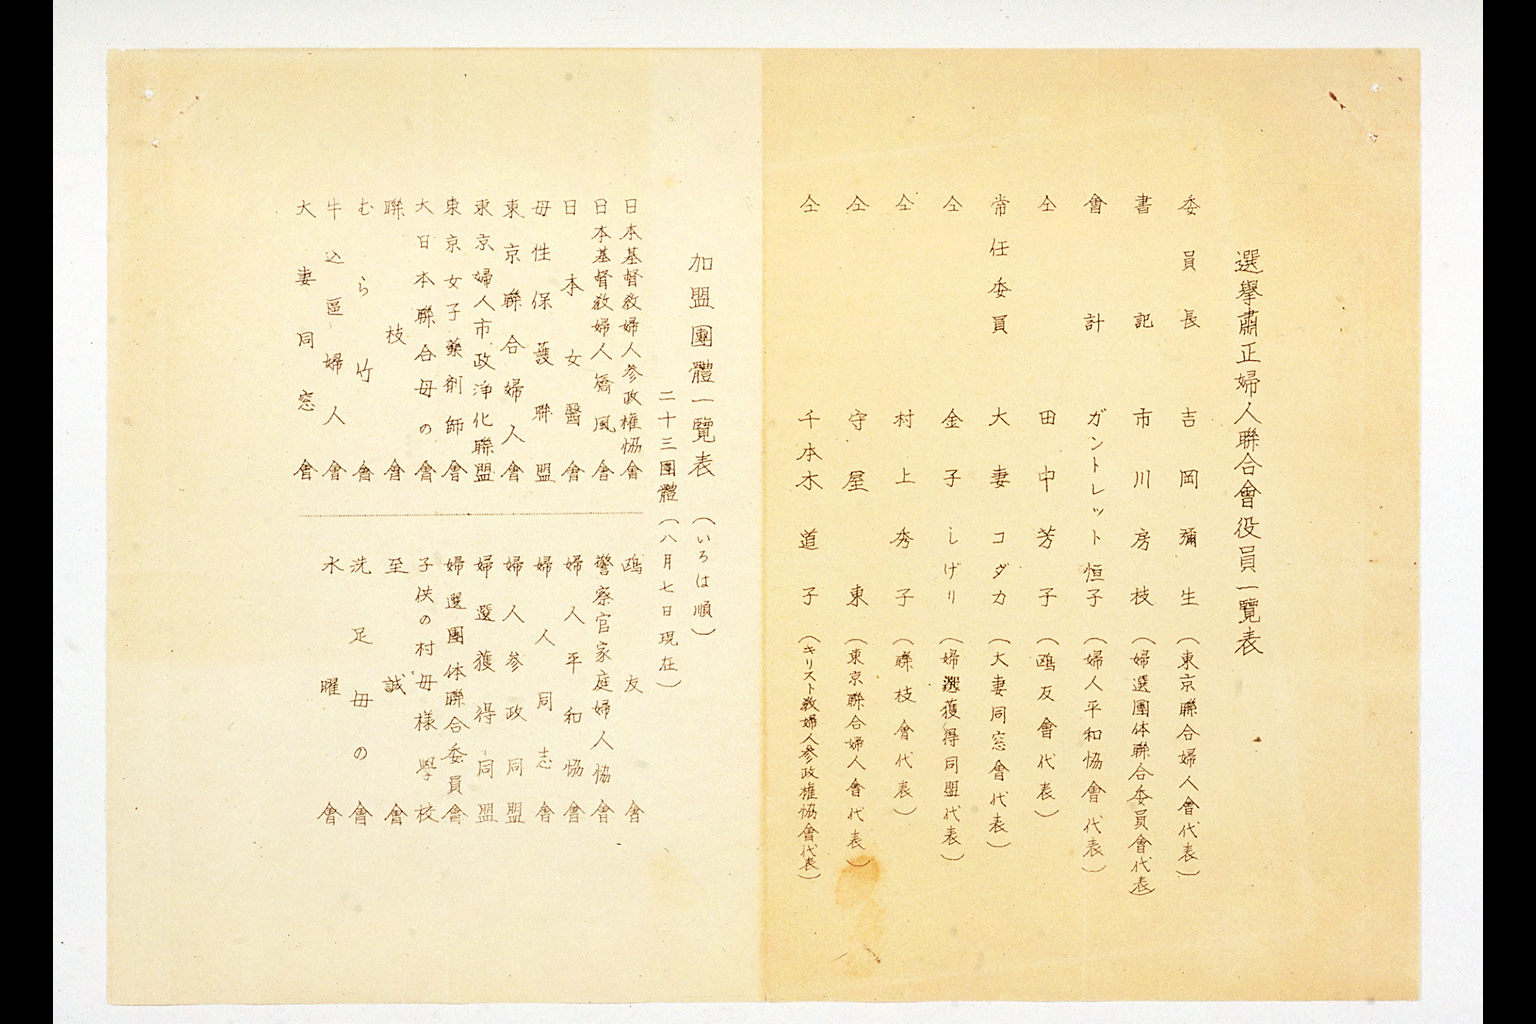 選擧肅正婦人聯合會役員一覽表
委員長 吉岡彌生 (東京聯合婦人會代表)
書記 市川房枝 (婦選團体聯合委員會代表)
會計 ガントレット恒子 (婦人平和協會代表)
仝 田中芳子 (鴎友會代表)
常任委員 大妻コダカ (大妻同窓會代表)
仝 金子しげり (婦選獲得同盟代表)
仝 村上秀子 (聯枝會代表)
仝 守屋東 (東京聯合婦人會代表)
仝 千本木道子 (キリスト敎婦人参政権協會代表)
加盟團體一覽表 (いろは順)
二十三團體 (八月七日現在)
日本基督敎婦人参政権協會
日本基督敎婦人矯風會
日本女醫會
母性保護聯盟
東京聯合婦人會
東京婦人市政浄化聯盟
東京女子藥剤師會
大日本聯合母の會
聯枝會
むら竹會
牛込區婦人會
大妻同窓會
鴎友會
警察官家庭婦人協會
婦人平和協會
婦人同志會
婦人参政同盟
婦選獲得同盟
婦選團体聯合委員會
子供の村母様學校
至誠會
洗足母の會
水曜會